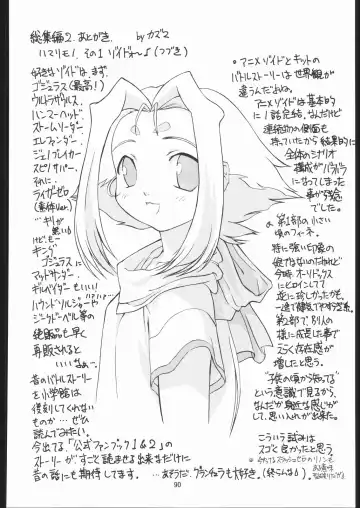 総集編2. あとがき. by カズマ
ハマりモノ その1 ゾイドぉ〜♪(つづき)
好きなゾイドは まず、
ゴジュラス(最高!)
ウルトラザウルス、
ハンマーヘッド、
ストームソーダー、
エレファンダー、
ジェノブレイカー、
スピノサパー、
それに…
ライガーゼロ
(素体Ver.)
…キリが
無い♪
けど、も一
キング
ゴジュラスに
マッドサンダー、
ギルベイダーも
いい!
ハウンドソルジャーや
ジークドーベル等の
絶版品も早く
再販されると
いいなー。
昔のバトルストーリー
を小学館は
復刻してくれない
ものか… ぜひ
読んでみたい。
今出てる「公式ファンブック1&2」の
ストーリーが すごく読ませる出来なだけに
昔の話にも期待してます。 …あそうだ、グランチュラも大好き。(終らんな♪)
•アニメゾイドとキットの
バトルストーリーは世界観が
違うんだよね。
アニメゾイドは基本的
に1話完結、なんだけど
連続物の側面も
持っていたから結果的に
全体のシナリオ
構成がアバウト
になってしまった
事が残念
でした。
第1部の小さい
頃のフィーネ。
特に強い印象の
娘でもないのだけれど
今時 オーソドックス
なヒロインしてて
逆に珍しかったかも。
一途で健気でやきもち系。
第2部で別人の
様に成長した事で
さらに存在感が
増したと思う。
"子供の頃から知ってる"
という意識で見るから、
なんだか身近な感じが
して思い入れが出来た。
こういう試みは
スゴく良かったと思う
90